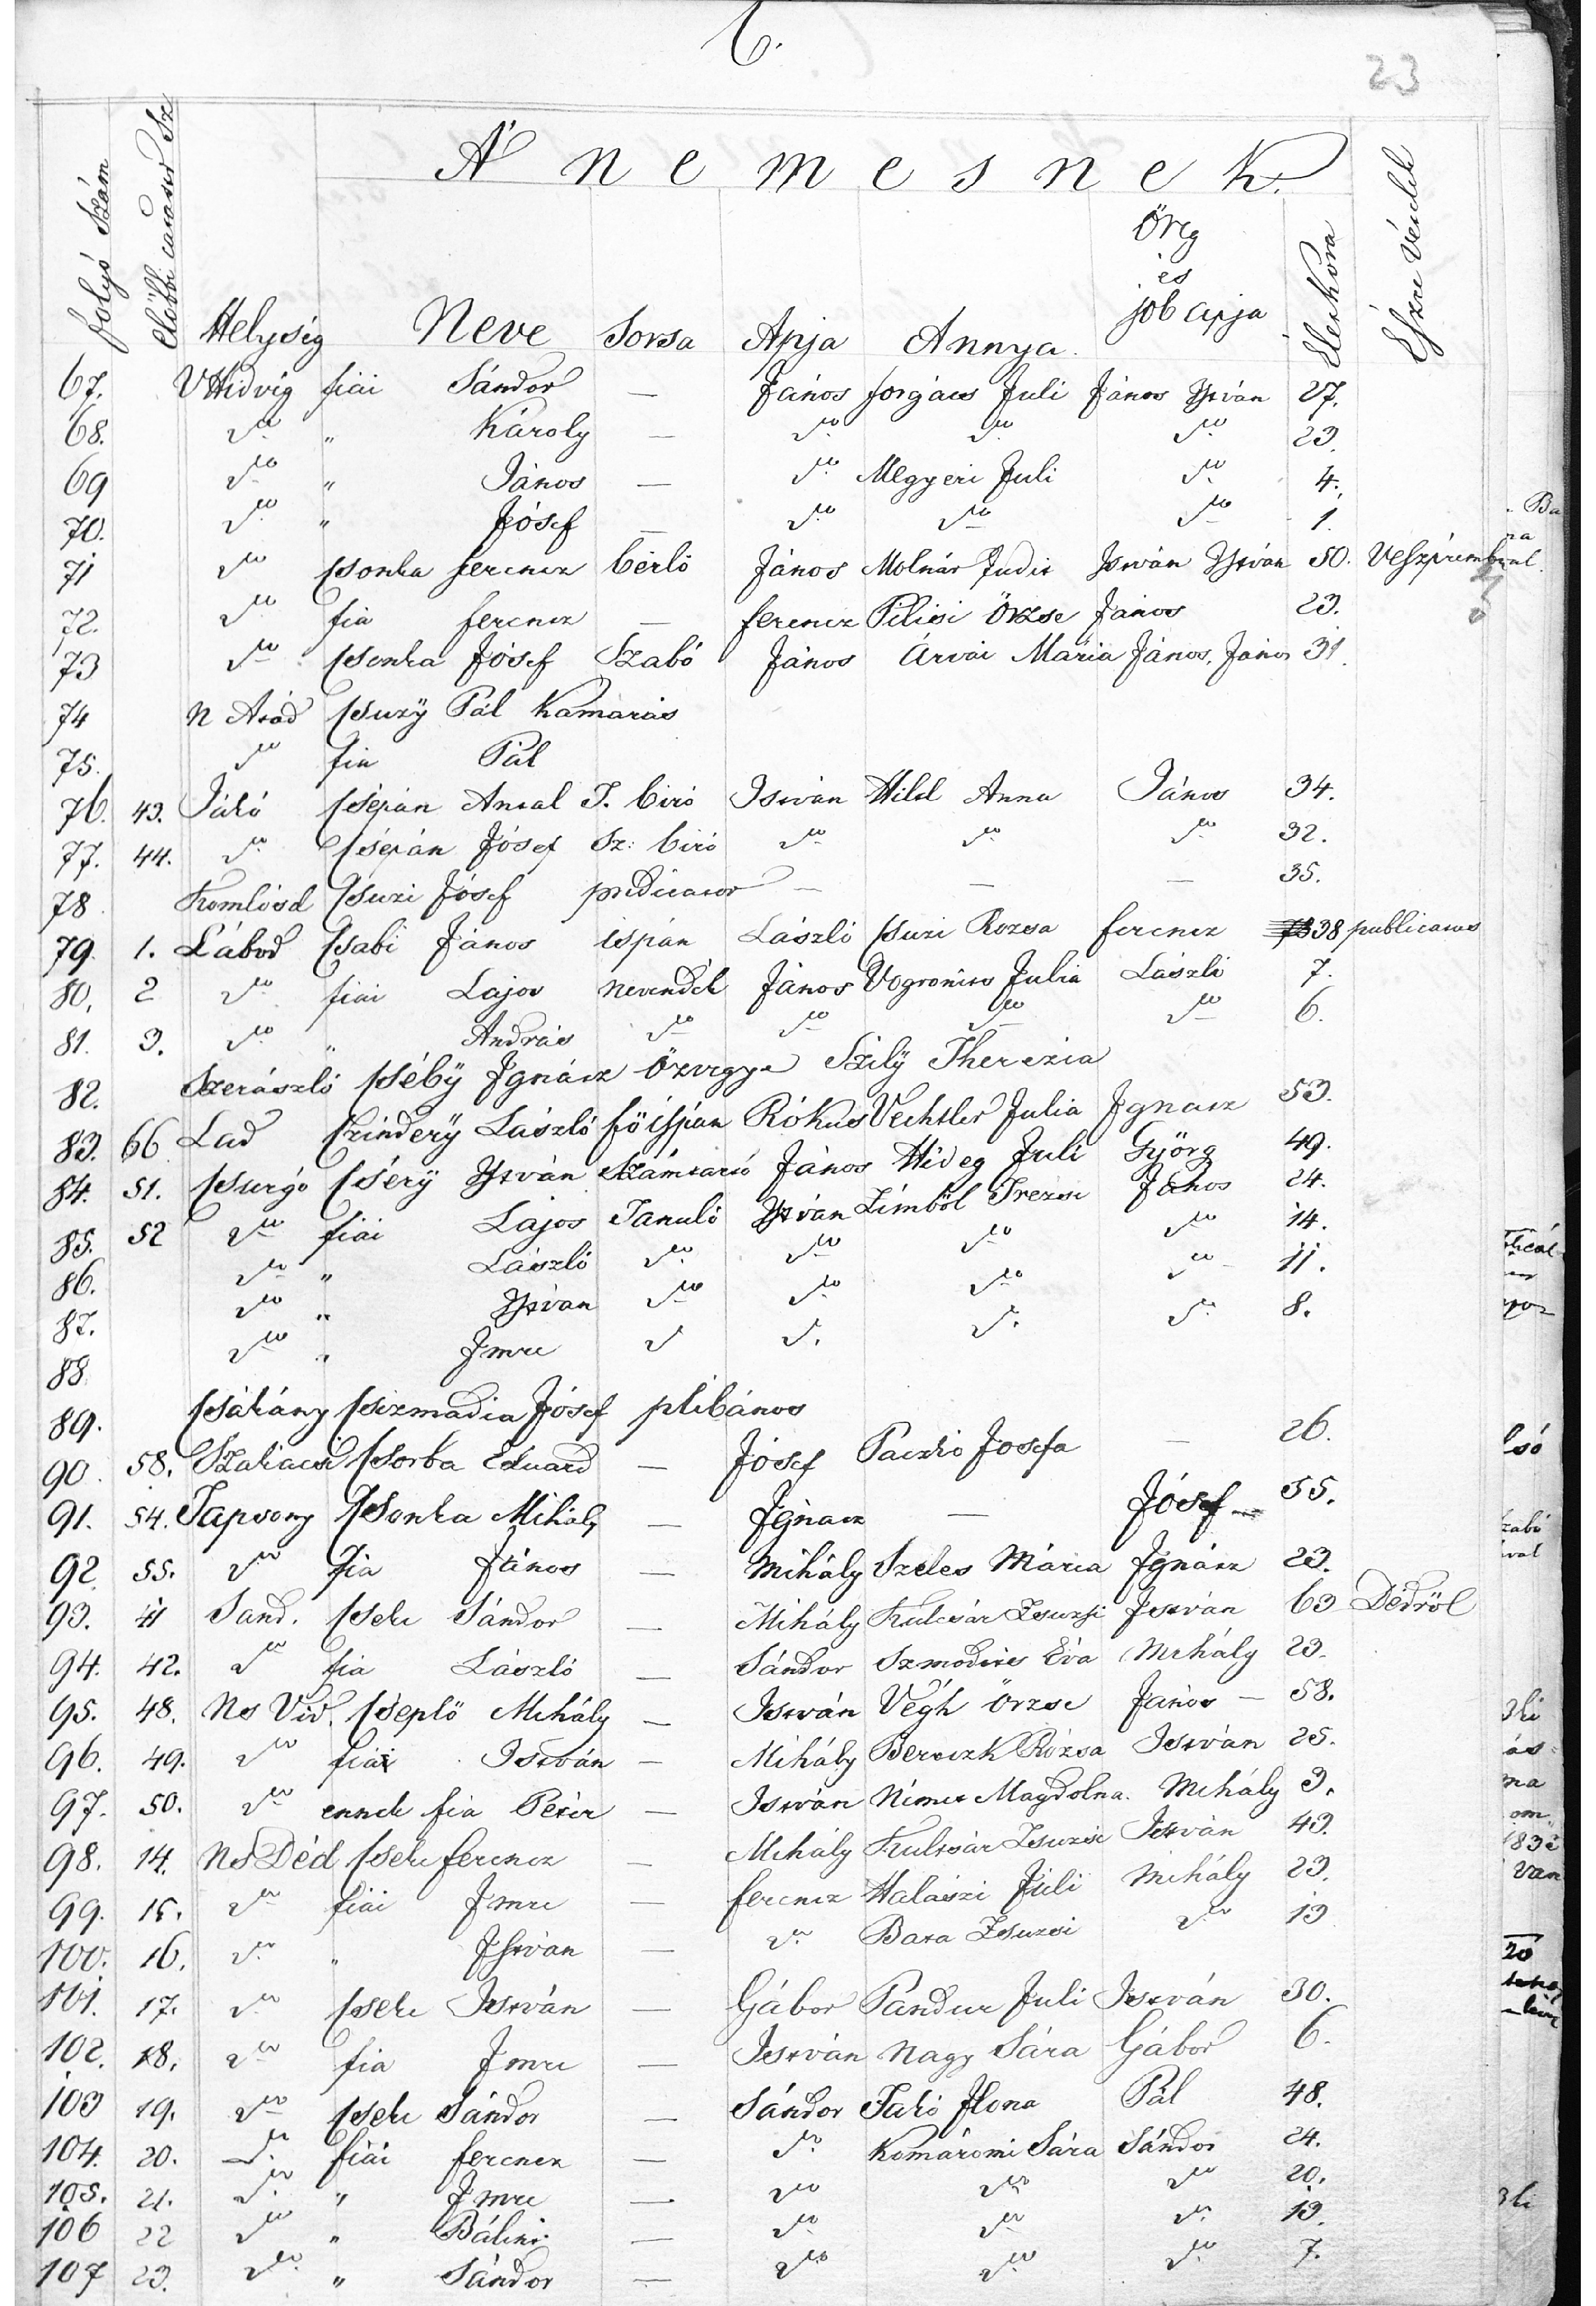 6.
23
A' nemesnek.
folyó Szám
előbbi Szá
Helység Neve Sorsa Apja Annya. Öreg és job apja Élet Kora Észre Vétel
67. VHidvég fiai Sándor — János forgács Juli János István 27.
68. do " Károly — do do do 23.
69 do " János — do Megyeri Juli do 4.
70. do " Jósef — do do do 1.
71 do Csonka ferencz bérlő János Molnár Judit István István 50. Veszprémbül.
72. do fia ferencz — ferencz Pilisi Örzse János 23.
73 do Csonka Jósef Szabó János Árvai Mária János, János 31.
74 N Atád Csuzÿ Pál Kamarás
75. do fia Pál
76. 43. Jákó Csépán Antal T. biró István Hild Anna János 34.
77. 44. do Csépán Jósef Sz: biró do do do 32.
78 Komlósd Csuzi Jósef predicator — — — 35.
79. 1. Lábod Csabi János ispán László Csuzi Rozsa ferencz 38 publicatus
80. 2 do fiai Lajos nevendék János Vogronits Julia László 7.
81. 3. do " András do do do do 6.
82. Szerászló Csébÿ Ignácz özvegye Szilÿ Therezia
83. 66 Lad Czinderÿ László főispán Rókus Vechtler Julia Ignacz 53.
84. 51. Csurgó Cserÿ István Számtartó János Hideg Juli Györg 49.
85. 52 do fiai Lajos Tanuló István Zimből Trezse János 24.
86. do " László do do do do 14.
87. do " István do do do do 11.
88. do " Imre do do do do 8.
89. Csákány Csizmadia Jósef plébános
90. 58. Szakacsi Csorba Eduard — Jósef Paczkó Josefa — 26.
91. 54. Tapsony Csonka Mihály — Ignacz — Jósef — 55.
92. 55. do fia János — Mihály Szeles Mária Ignácz 23.
93. 41 Sand. Cseke Sándor — Mihály Kulcsár Zsuzsi István 63 Dédről
94. 42. do fia László — Sándor Szmodics Éva Mihály 23.
95. 48. Ns Vid. Cseplő Mihály — István Végh Örzse János — 58.
96. 49. do fia István — Mihály Berczik Rózsa István 25.
97. 50. do ennek fia Péter — István Német Magdolna. Mihály 3.
98. 14. Ns Déd Cseke ferencz — Mihály Kultsár Zsuzsi István 43.
99. 15. do fiai Imre — ferencz Halászi Juli Mihály 23.
100. 16. do " István — do Bata Zsuzsi do 13
101. 17. do Cseke István — Gábor Pandur Juli István 30.
102. 18. do fia Imre — István Nagy Sára Gábor 6.
103 19. do Cseke Sándor — Sándor Jakó Ilona Pál 48.
104. 20. do fiai ferencz — do Komáromi Sára Sándor 24.
105. 21. do " Imre — do do do 20.
106 22 do " Bálint — do do do 13.
107 23. do " Sándor — do do do 7.